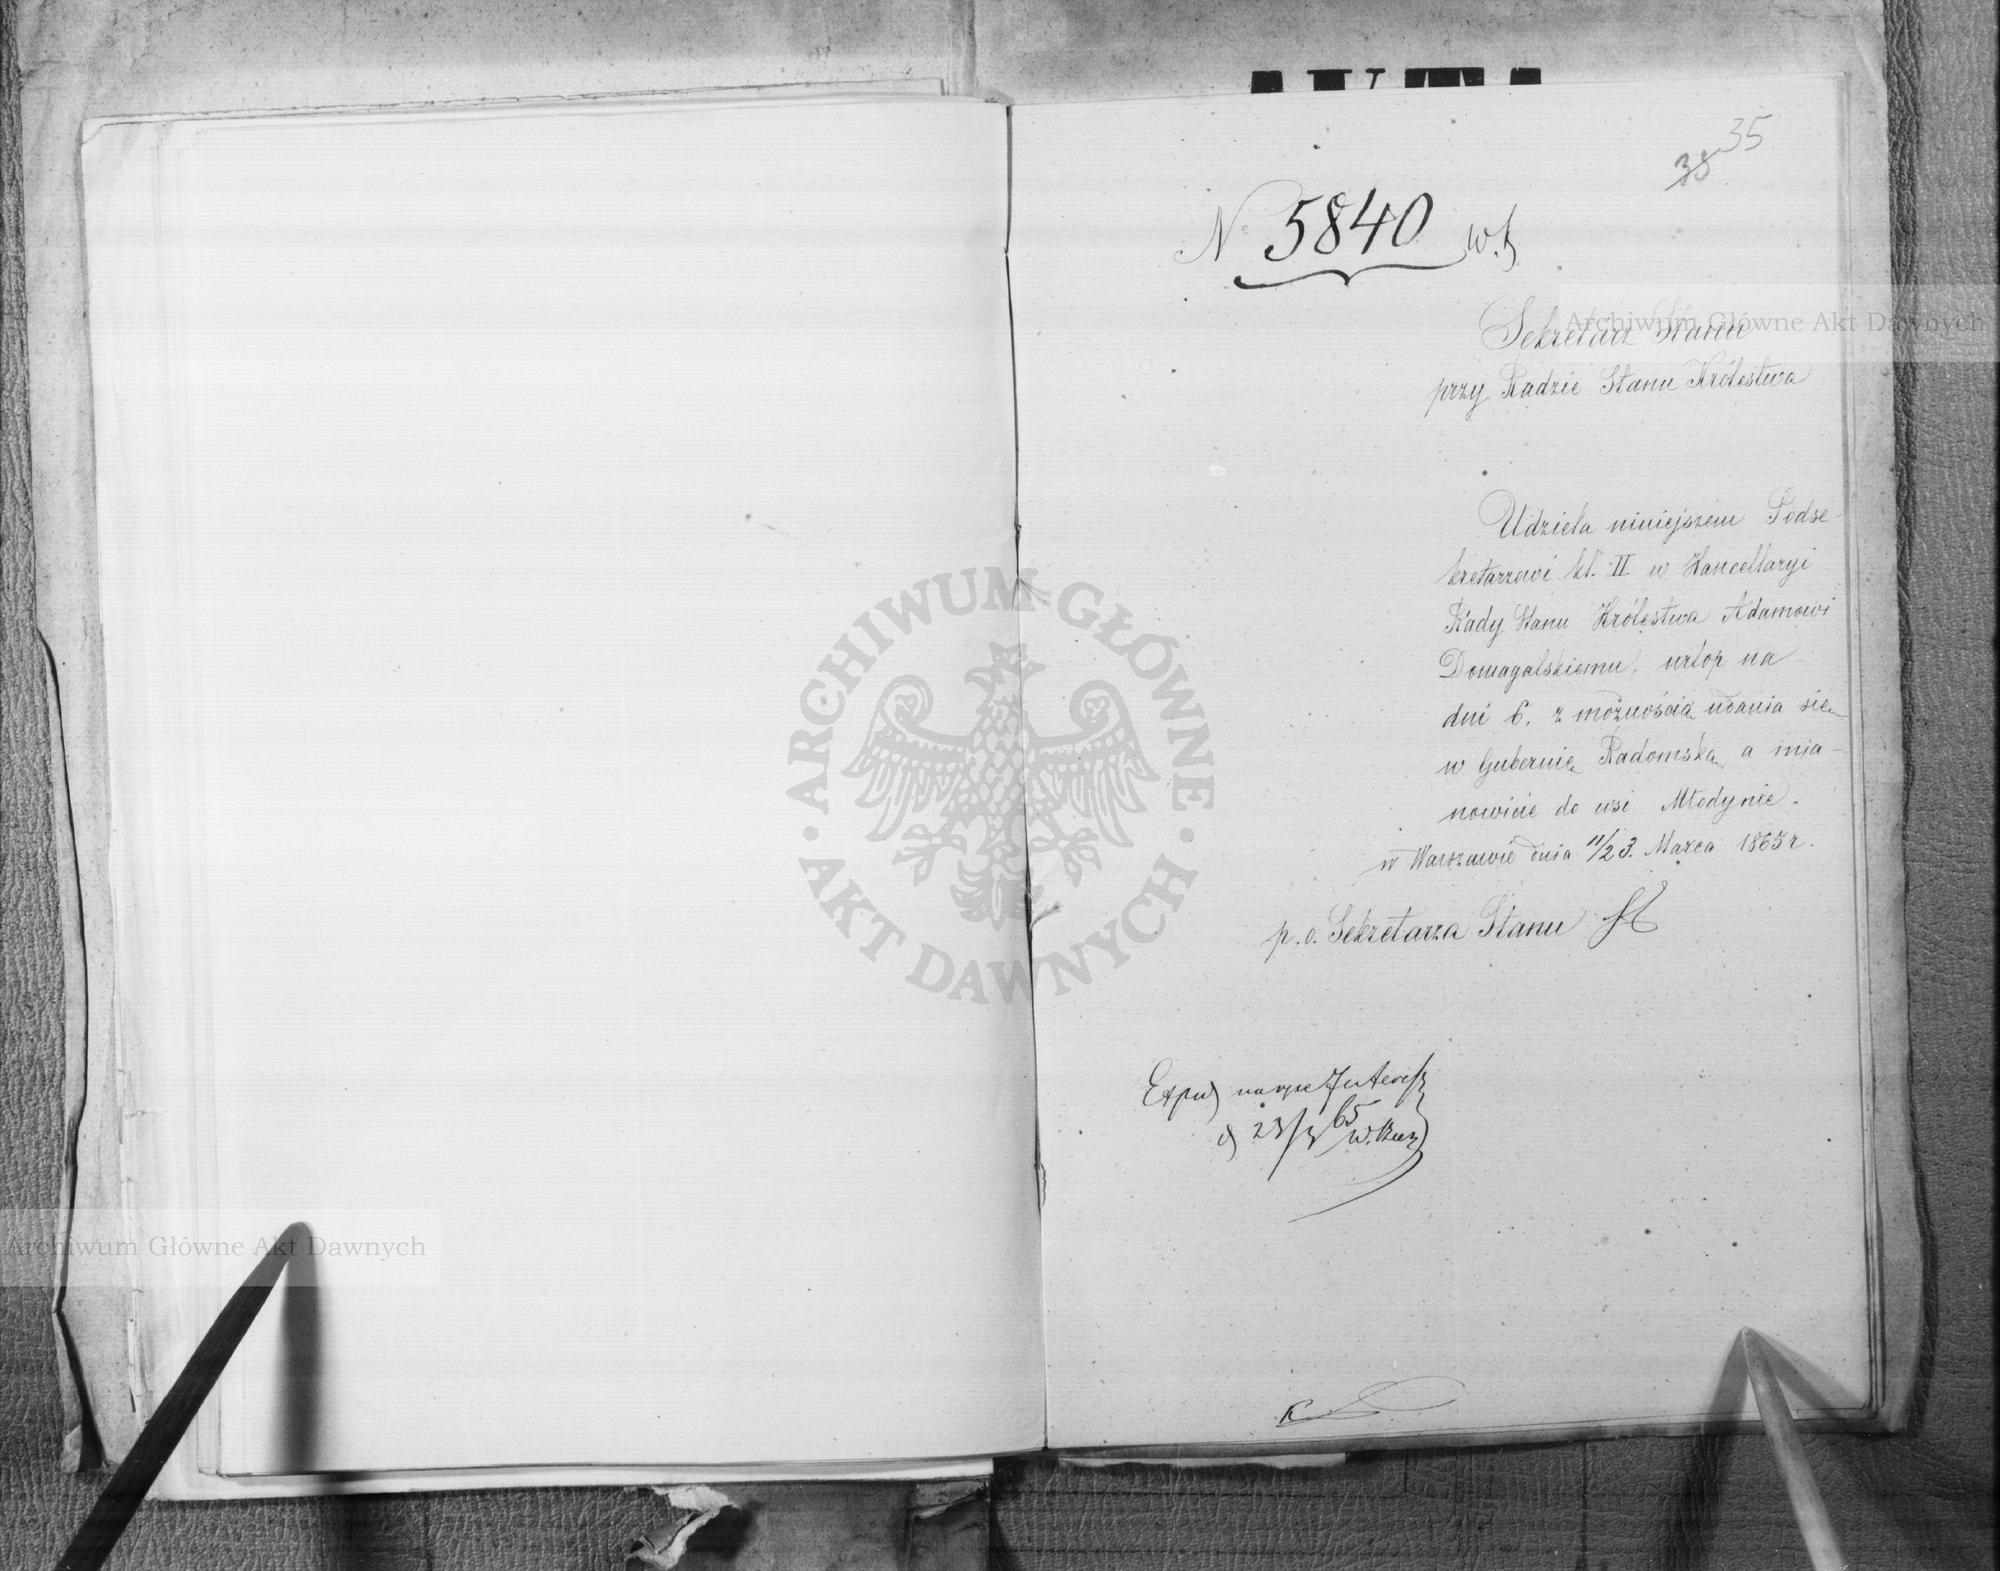 35
38
N° 5840 w.
Sekretarz Stanu
przy Radzie Stanu Królestwa
Udziela niniejszem Podse-
kretarzowi kl. II w Kancellaryi
Rady Stanu Królestwa Adamowi
Domagalskiemu, urlop na
dni 6. z możnością udania się
w Gubernię Radomską a mia-
nowicie do wsi Młodynie.
w Warszawie dnia 11/23. Marca 1865 r.
p. o. Sekretarza Stanu
23/3 65
Archiwum Główne Akt Dawnych
ARCHIWUM GŁÓWNE AKT DAWNYCH
Archiwum Główne Akt Dawnych